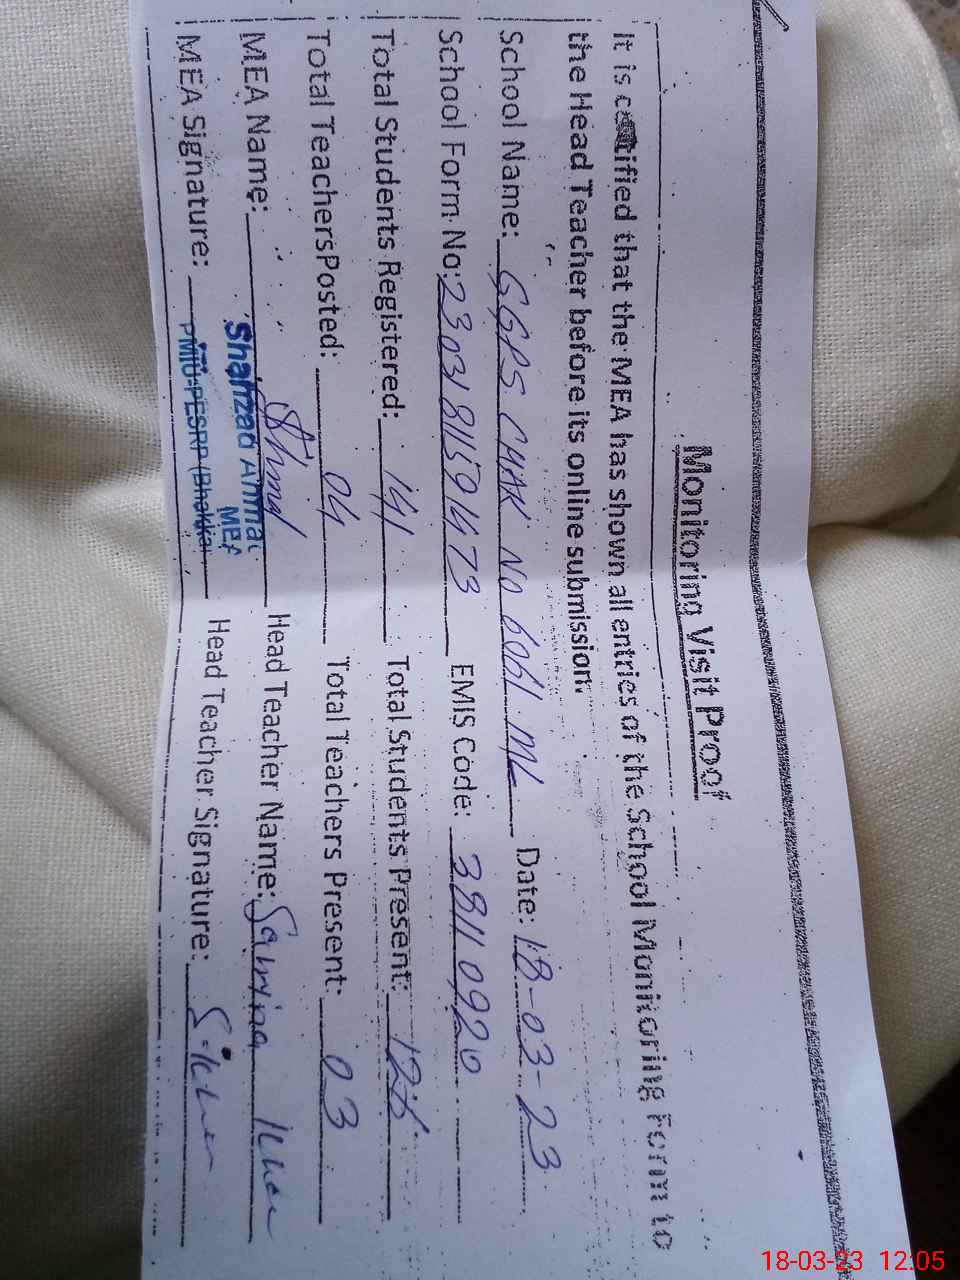 Monitoring Visit Proof
It is certified that the MEA has shown all entries of the School Monitoring Form to
the Head Teacher before its online submission.
School Name: GGPS CHAK NO 60/1.ML Date: 18-03-23
School Form No: EMIS Code: 38110920
Total Students Registered: 141 Total Students Present:
Total TeachersPosted: 04 Total Teachers Present: 03
MEA Name: Head Teacher Name: Samina
Shahzad Ahmad
MEA
MEA Signature: Head Teacher Signature:
PMIU-PESRP (Bhakkar
18-03-23 12:05